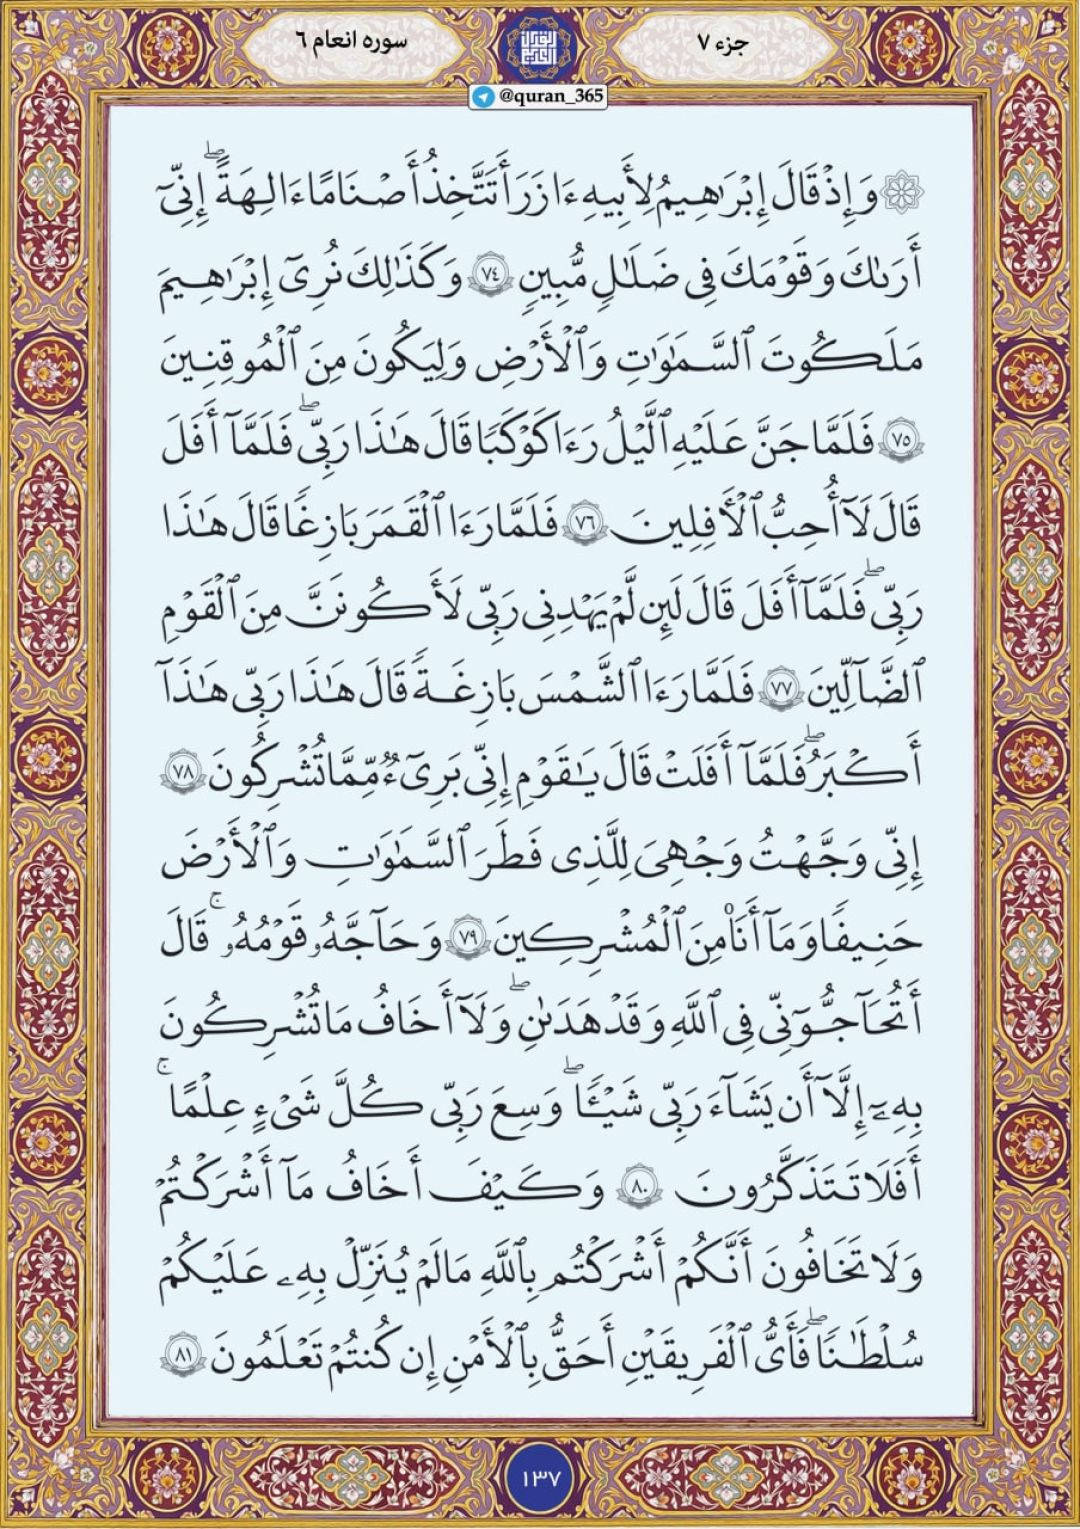 جزء ۷
سوره انعام ٦
@quran_365
۞ وَإِذْ قَالَ إِبْرَٰهِيمُ لِأَبِيهِ ءَازَرَ أَتَتَّخِذُ أَصْنَامًا ءَالِهَةً ۖ إِنِّىٓ
أَرَىٰكَ وَقَوْمَكَ فِى ضَلَـٰلٍ مُّبِينٍ ٧٤ وَكَذَٰلِكَ نُرِىٓ إِبْرَٰهِيمَ
مَلَكُوتَ ٱلسَّمَـٰوَٰتِ وَٱلْأَرْضِ وَلِيَكُونَ مِنَ ٱلْمُوقِنِينَ
٧٥ فَلَمَّا جَنَّ عَلَيْهِ ٱلَّيْلُ رَءَا كَوْكَبًا قَالَ هَـٰذَا رَبِّى ۖ فَلَمَّآ أَفَلَ
قَالَ لَآ أُحِبُّ ٱلْأَفِلِينَ ٧٦ فَلَمَّا رَءَا ٱلْقَمَرَ بَازِغًا قَالَ هَـٰذَا
رَبِّى ۖ فَلَمَّآ أَفَلَ قَالَ لَئِن لَّمْ يَهْدِنِى رَبِّى لَأَكُونَنَّ مِنَ ٱلْقَوْمِ
ٱلضَّآلِّينَ ٧٧ فَلَمَّا رَءَا ٱلشَّمْسَ بَازِغَةً قَالَ هَـٰذَا رَبِّى هَـٰذَآ
أَكْبَرُ ۖ فَلَمَّآ أَفَلَتْ قَالَ يَـٰقَوْمِ إِنِّى بَرِىٓءٌ مِّمَّا تُشْرِكُونَ ٧٨
إِنِّى وَجَّهْتُ وَجْهِىَ لِلَّذِى فَطَرَ ٱلسَّمَـٰوَٰتِ وَٱلْأَرْضَ
حَنِيفًا وَمَآ أَنَا۠ مِنَ ٱلْمُشْرِكِينَ ٧٩ وَحَآجَّهُۥ قَوْمُهُۥ ۚ قَالَ
أَتُحَـٰٓجُّوٓنِّى فِى ٱللَّهِ وَقَدْ هَدَىٰنِ ۖ وَلَآ أَخَافُ مَا تُشْرِكُونَ
بِهِۦٓ إِلَّآ أَن يَشَآءَ رَبِّى شَيْـًٔا ۖ وَسِعَ رَبِّى كُلَّ شَىْءٍ عِلْمًا ۚ
أَفَلَا تَتَذَكَّرُونَ ٨٠ وَكَيْفَ أَخَافُ مَآ أَشْرَكْتُمْ
وَلَا تَخَافُونَ أَنَّكُمْ أَشْرَكْتُم بِٱللَّهِ مَا لَمْ يُنَزِّلْ بِهِۦ عَلَيْكُمْ
سُلْطَـٰنًا ۖ فَأَىُّ ٱلْفَرِيقَيْنِ أَحَقُّ بِٱلْأَمْنِ إِن كُنتُمْ تَعْلَمُونَ ٨١
١٣٧